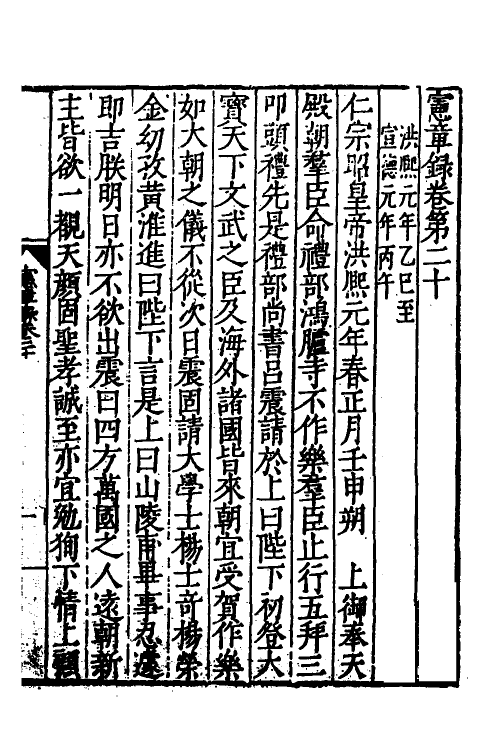 憲章録卷第二十
洪熙元年乙巳至
宣德元年丙午
仁宗昭皇帝洪熙元年春正月壬申朔　上御奉天
殿朝羣臣命禮部鴻臚寺不作樂羣臣止行五拜三
叩頭禮先是禮部尚書呂震請於上曰陛下初登大
寶天下文武之臣及海外諸國皆來朝宜受賀作樂
如大朝之儀不從次日震固請大學士楊士竒楊榮
金幼孜黃淮進曰陛下言是上曰山陵甫畢事忍遽
即吉朕明日亦不欲出震曰四方萬國之人遠朝新
主皆欲一覩天顔固聖孝誠至亦宜勉狥下情上顧